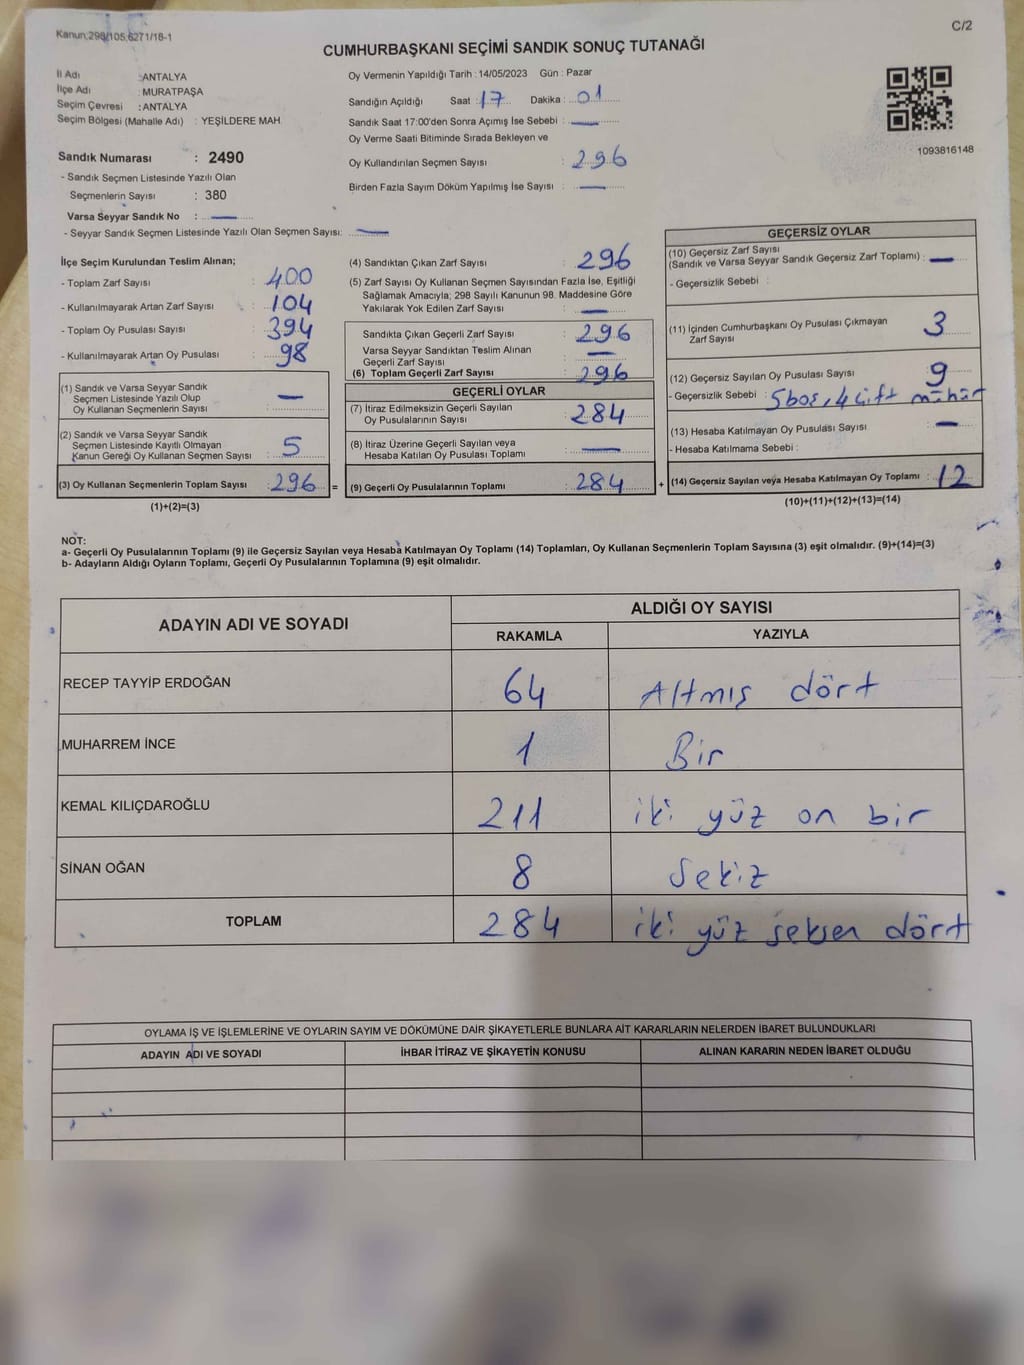 Kanun:298/105,6271/18-1
C/2
CUMHURBAŞKANI SEÇİMİ SANDIK SONUÇ TUTANAĞI
İl Adı :ANTALYA
İlçe Adı : MURATPAŞA
Seçim Çevresi : ANTALYA
Seçim Bölgesi (Mahalle Adı) : YEŞİLDERE MAH.
Sandık Numarası : 2490
- Sandık Seçmen Listesinde Yazılı Olan
Seçmenlerin Sayısı : 380
Varsa Seyyar Sandık No : —
- Seyyar Sandık Seçmen Listesinde Yazılı Olan Seçmen Sayısı: —
Oy Vermenin Yapıldığı Tarih : 14/05/2023 Gün : Pazar
Sandığın Açıldığı Saat : 17 Dakika : 01
Sandık Saat 17:00'den Sonra Açımış İse Sebebi : —
Oy Verme Saati Bitiminde Sırada Bekleyen ve
Oy Kullandırılan Seçmen Sayısı : 296
Birden Fazla Sayım Döküm Yapılmış İse Sayısı : —
1093816148
İlçe Seçim Kurulundan Teslim Alınan;
- Toplam Zarf Sayısı : 400
- Kullanılmayarak Artan Zarf Sayısı : 104
- Toplam Oy Pusulası Sayısı : 394
- Kullanılmayarak Artan Oy Pusulası : 98
(1) Sandık ve Varsa Seyyar Sandık
Seçmen Listesinde Yazılı Olup
Oy Kullanan Seçmenlerin Sayısı : —
(2) Sandık ve Varsa Seyyar Sandık
Seçmen Listesinde Kayıtlı Olmayan
Kanun Gereği Oy Kullanan Seçmen Sayısı : 5
(3) Oy Kullanan Seçmenlerin Toplam Sayısı : 296 =
(1)+(2)=(3)
(4) Sandıktan Çıkan Zarf Sayısı : 296
(5) Zarf Sayısı Oy Kullanan Seçmen Sayısından Fazla İse, Eşitliği
Sağlamak Amacıyla; 298 Sayılı Kanunun 98. Maddesine Göre
Yakılarak Yok Edilen Zarf Sayısı : —
Sandıkta Çıkan Geçerli Zarf Sayısı : 296
Varsa Seyyar Sandıktan Teslim Alınan
Geçerli Zarf Sayısı : —
(6) Toplam Geçerli Zarf Sayısı : 296
GEÇERLİ OYLAR
(7) İtiraz Edilmeksizin Geçerli Sayılan
Oy Pusulalarının Sayısı : 284
(8) İtiraz Üzerine Geçerli Sayılan veya
Hesaba Katılan Oy Pusulası Toplamı : —
(9) Geçerli Oy Pusulalarının Toplamı : 284 +
GEÇERSİZ OYLAR
(10) Geçersiz Zarf Sayısı
(Sandık ve Varsa Seyyar Sandık Geçersiz Zarf Toplamı) : —
- Geçersizlik Sebebi :
(11) İçinden Cumhurbaşkanı Oy Pusulası Çıkmayan
Zarf Sayısı 3
(12) Geçersiz Sayılan Oy Pusulası Sayısı : 9
- Geçersizlik Sebebi : 5 boş, 4 çift mühür
(13) Hesaba Katılmayan Oy Pusulası Sayısı : —
- Hesaba Katılmama Sebebi :
(14) Geçersiz Sayılan veya Hesaba Katılmayan Oy Toplamı : 12
(10)+(11)+(12)+(13)=(14)
NOT:
a- Geçerli Oy Pusulalarının Toplamı (9) ile Geçersiz Sayılan veya Hesaba Katılmayan Oy Toplamı (14) Toplamları, Oy Kullanan Seçmenlerin Toplam Sayısına (3) eşit olmalıdır. (9)+(14)=(3)
b- Adayların Aldığı Oyların Toplamı, Geçerli Oy Pusulalarının Toplamına (9) eşit olmalıdır.
ADAYIN ADI VE SOYADI
ALDIĞI OY SAYISI
RAKAMLA YAZIYLA
RECEP TAYYİP ERDOĞAN 64 Altmış dört
MUHARREM İNCE 1 Bir
KEMAL KILIÇDAROĞLU 211 iki yüz on bir
SİNAN OĞAN 8 Sekiz
TOPLAM 284 iki yüz seksen dört
OYLAMA İŞ VE İŞLEMLERİNE VE OYLARIN SAYIM VE DÖKÜMÜNE DAİR ŞİKAYETLERLE BUNLARA AİT KARARLARIN NELERDEN İBARET BULUNDUKLARI
ADAYIN ADI VE SOYADI İHBAR İTİRAZ VE ŞİKAYETİN KONUSU ALINAN KARARIN NEDEN İBARET OLDUĞU